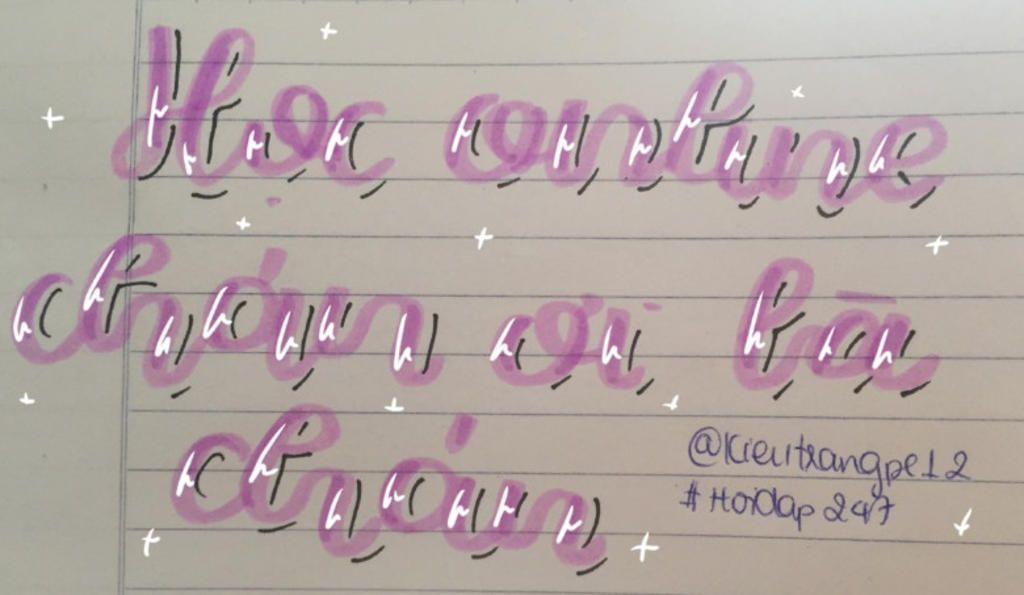 Học online
chán ơi là
chán
@Kieutrangpe12
#Hoidap247